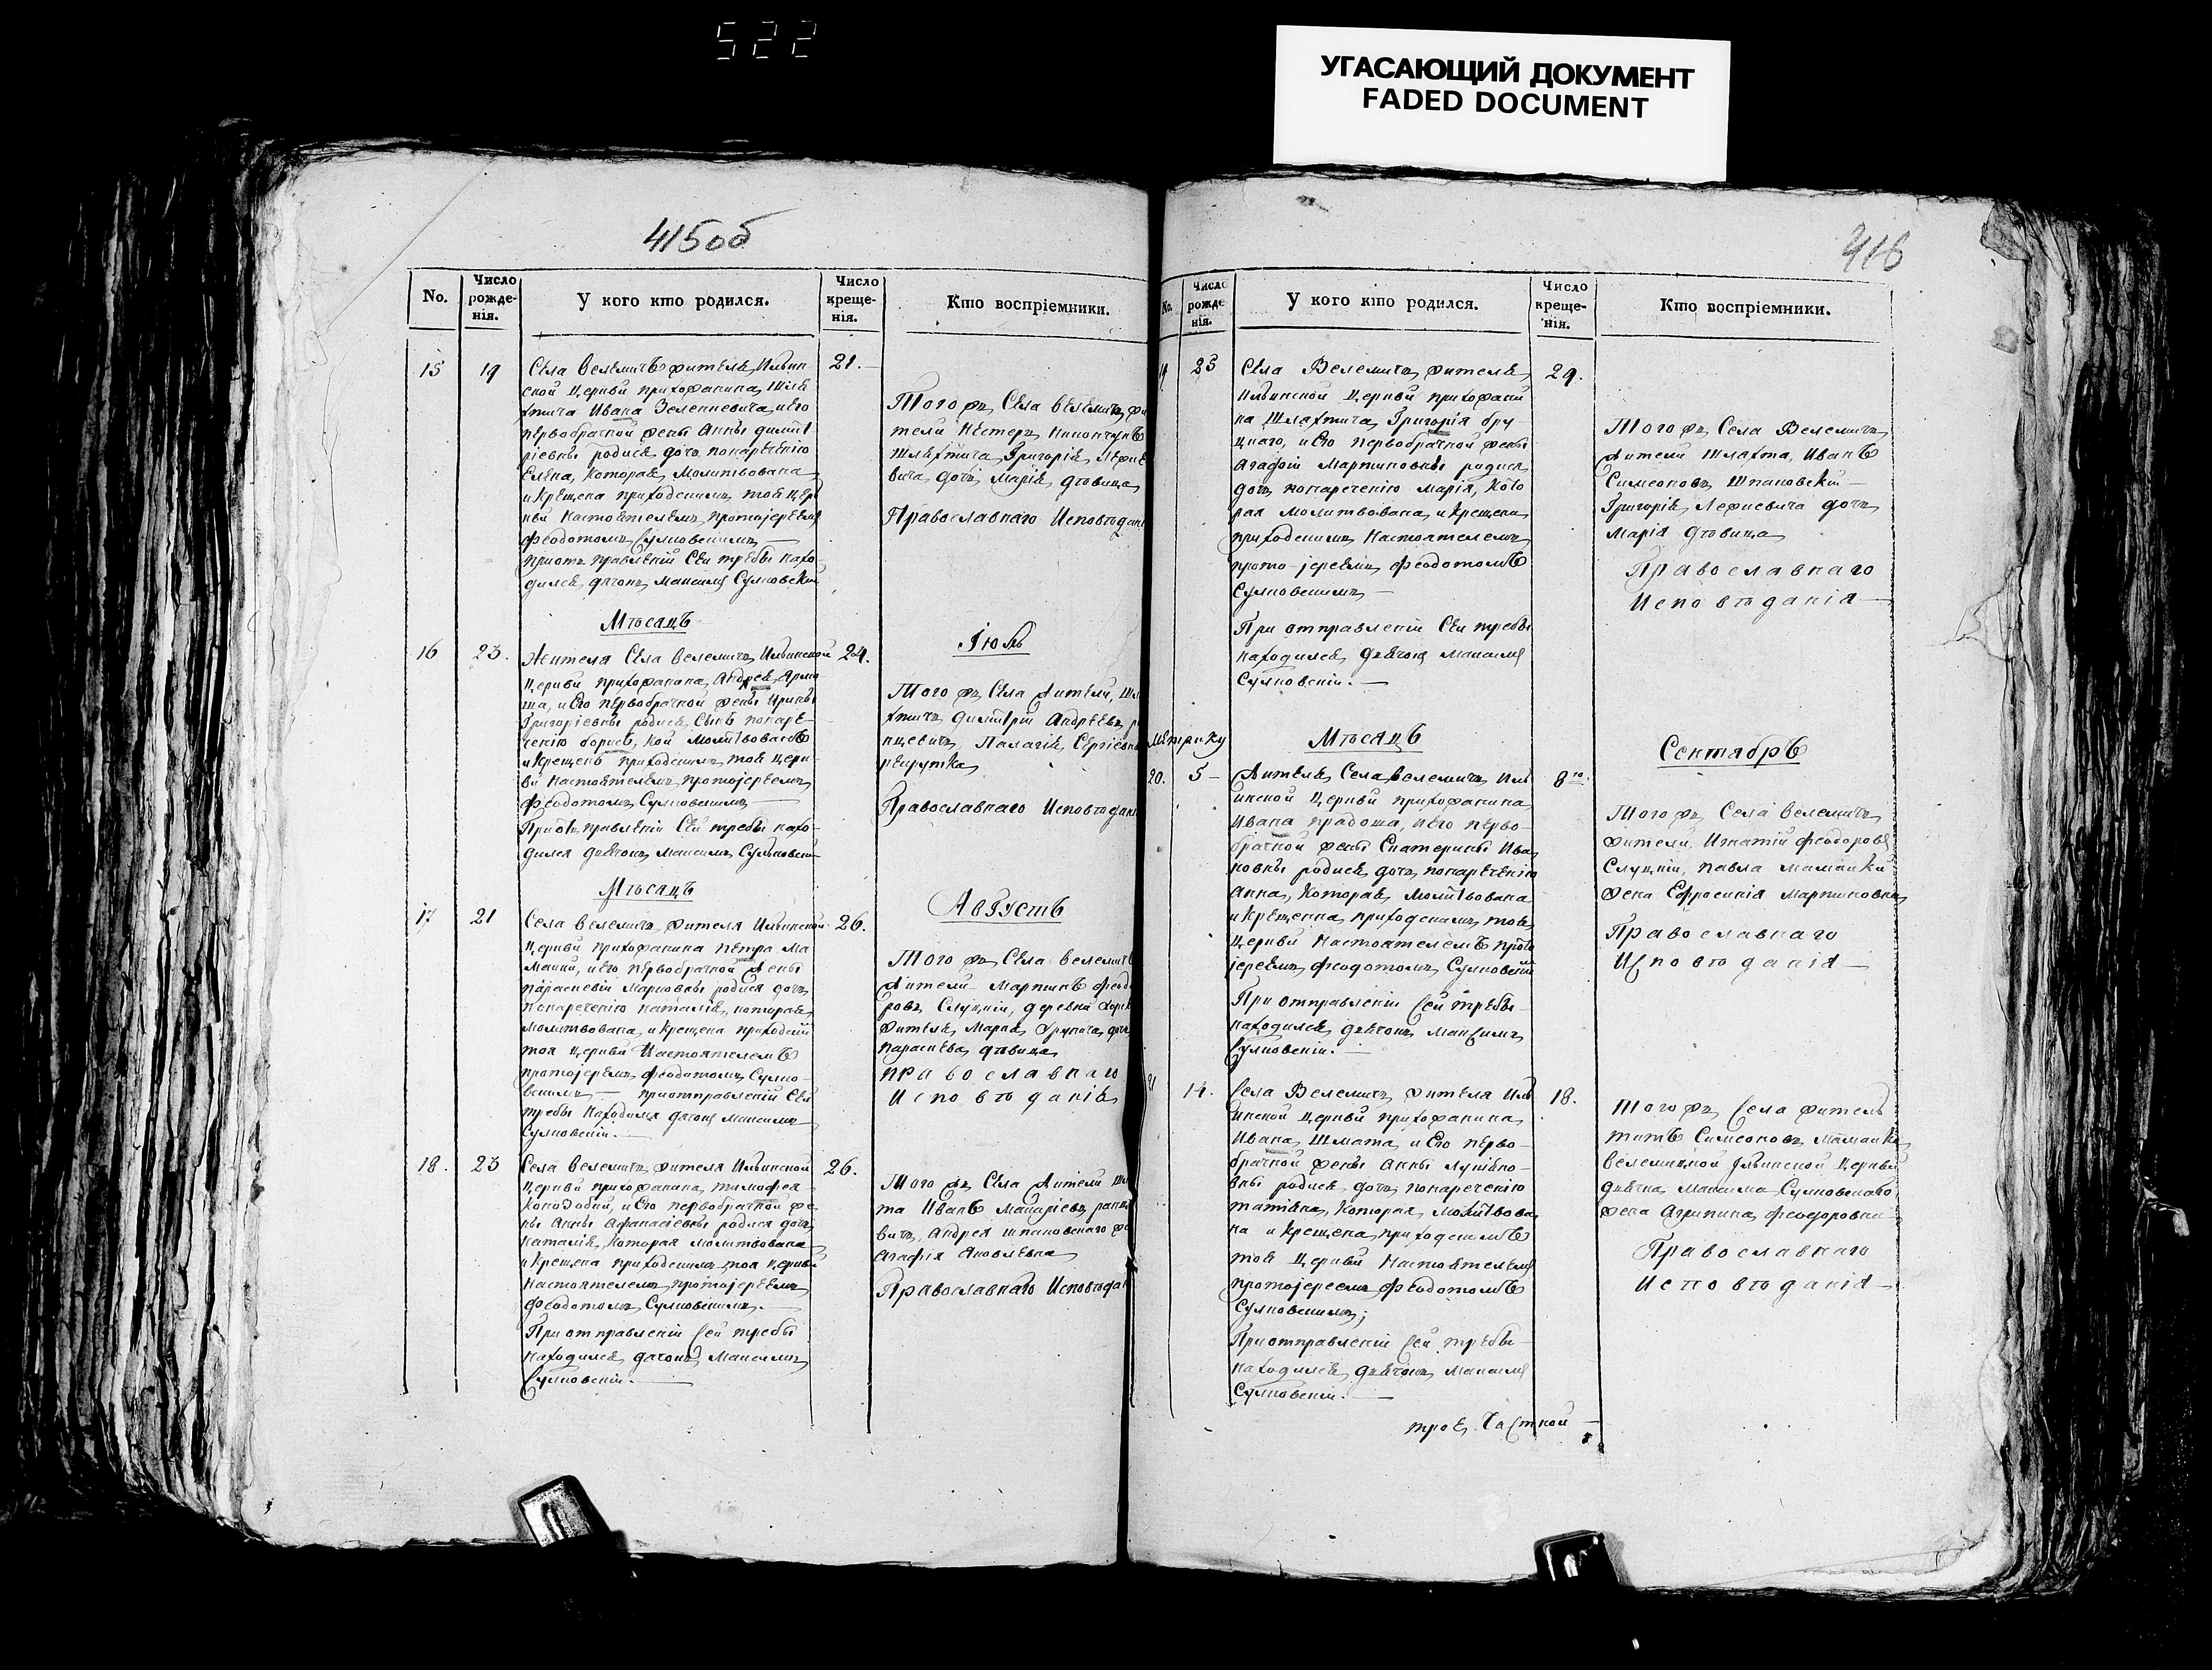 522
УГАСАЮЩИЙ ДОКУМЕНТ
FADED DOCUMENT
415об
No.
Число рожде-нія.
У кого кто родился.
Число креще-нія.
Кто воспріемники.
15
19
Села Велемичъ жителя, Ильин
ской Церкви прихожанина, Шля
хтича Ивана Зеленкевича, и его
первобрачной жены Анны Димит
ріевны родися дочь, понареченію
Елена, которая молитвована
и крещена приходскимъ той Цер
кви настоятелемъ, протоіереемъ
Феодотомъ Сулковскимъ —
приотправленіи сеи требы нахо-
дился дячокъ Максимъ Сулковскій
21.
Того жъ Села Велемичъ жи
тели Нестеръ
Шляхтича Григорія
вича дочь Марія девица
Православнаго Исповѣдані
Мѣсацъ
Іюль
16
23.
Жителя Села Велемичъ, Ильинской
Церкви прихожанина, Андрея Ярми
ша, и его первобрачной жены Ирины
Григоріевны родися Сынъ понаре-
ченію борисъ, кой молитвованъ
и крещенъ приходскимъ той Церк-
ви настоятелемъ протоіереемъ
Феодотомъ Сулковскимъ —
Приотправленіи Сей требы нахо-
дился дьячокъ Максимъ Сулковскій
24.
Того жъ Села жители, Шл
хтичъ Димитрій Андреевъ р
нцевичъ, Палагія Сергіевна
рекрутка
Православнаго Исповѣдані
Мѣсацъ
Августъ
17
21
Села Велемичъ жителя Ильинской
Церкви прихожанина Петра Ма
майки, и его первобрачной жены
параскевіи Марковны родися дочь
понареченію наталія, которая
молитвована, и крещена приходскимъ
тоя Церкви Настоятелемъ
протоіереемъ Феодотомъ Сулко-
вскимъ — приотправленіи Сей
требы находился дячокъ Максимъ
Сулковскій. —
26.
Того жъ Села Велемичъ
жители Мартинъ Феодо
ровъ Слуцкій, деревни
жителя Марка дочь
параскева девица
православнаго
Исповѣданія
18.
23
Села Велемичъ жителя Ильинской
Церкви прихожанина, тимофея
Коноздобки, и его первобрачной же
ны Анны Афанасіевны родися дочь
наталія, которая молитвована
и крещена приходскимъ тоя Церкви
настоятелемъ протоіереемъ
Феодотомъ Сулковскимъ. —
При отправленіи Сей требы
находился дячокъ Максимъ
Сулковскій. —
26.
Того жъ Села жители Шл
та Иванъ Макаріевъ ранц
вичъ, Андрея Шпаковскаго же
Агафія Яковлевна
Православнаго Исповѣдан
416
No.
Число рожде нія.
У кого кто родился.
Число креще-нія.
Кто воспріемники.
19
23
Села Велемичъ, жителя
Ильинской Церкви прихожани
на Шляхтича, Григорія бру
цкаго, и его первобрачной жены
Агафіи Мартиновны родися
дочь понареченію Марія, кото
рая молитвована, и крещена
приходскимъ настоятелемъ
прото-іереемъ Феодотомъ
Сулковскимъ —
При отправленіи Сеи требы
находился, дьячокъ Максимъ
Сулковскій. —
29.
Того жъ Села Велемичъ
жители Шляхта, Иванъ
Симеоновъ Шпаковскій —
Григорія дочь
Марія девица
Православнаго
Исповѣданія —
метрику
Мѣсацъ
Сентябръ
20.
5 —
Жителя Села Велемичъ Иль
инской Церкви прихожанина
Ивана прадоша, и его перво-
брачной жены Екатерины Ива
новны родися дочь понареченію
Анна, которая молитвована
и крещенна, приходскимъ тоя
Церкви настоятелемъ прото
іереемъ Феодотомъ Сулковскимъ
При отправленіи Сей требы
находился дьячокъ Максимъ
Сулковскій. —
8го.
Того жъ Села Велемичъ
жители, Игнатій Феодоровъ
Слуцкій, павла Мамайки
жена Ефросинія Мартиновна
Православнаго
Исповѣданія —
21
14.
Села Велемичъ жителя Иль
инской Церкви прихожанина
Ивана Шмата и его перво-
брачной жены Анны Лукіяно-
вны родися дочь понареченію
татіяна, которая, молитвова
на и крещена, приходскимъ
той Церкви Настоятелемъ
протоіереемъ Феодотомъ
Сулковскимъ;
При отправленіи Сей требы
находился дьячокъ Максимъ
Сулковскій. —
18.
Того жъ Села житель
титъ Симеоновъ Мамайка
Велемицкой Ильинской Церкви
дьячка Максима Сулковскаго
жена Агрипина Феодоровна
Православнаго
Исповѣданія —
троя. Частной —